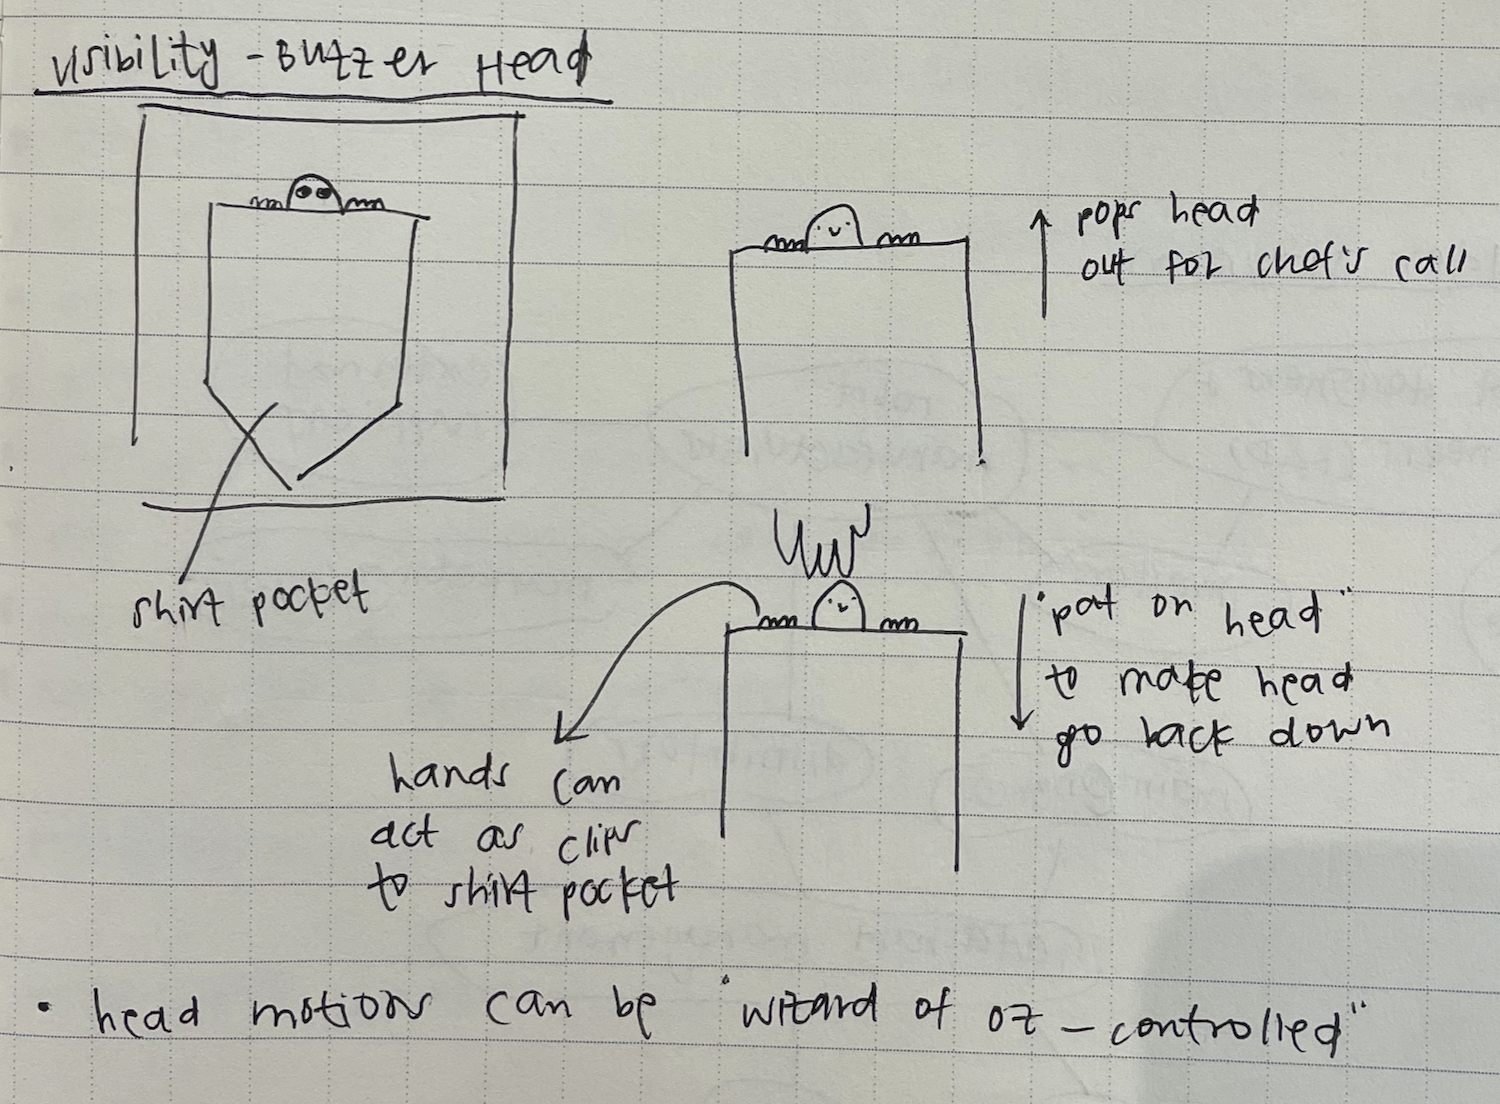 visibility - Buzzer Head
pops head
out for chef's call
shirt pocket
"pat on head"
to make head
go back down
hands can
act as clips
to shirt pocket
• head motions can be "wizard of oz - controlled"